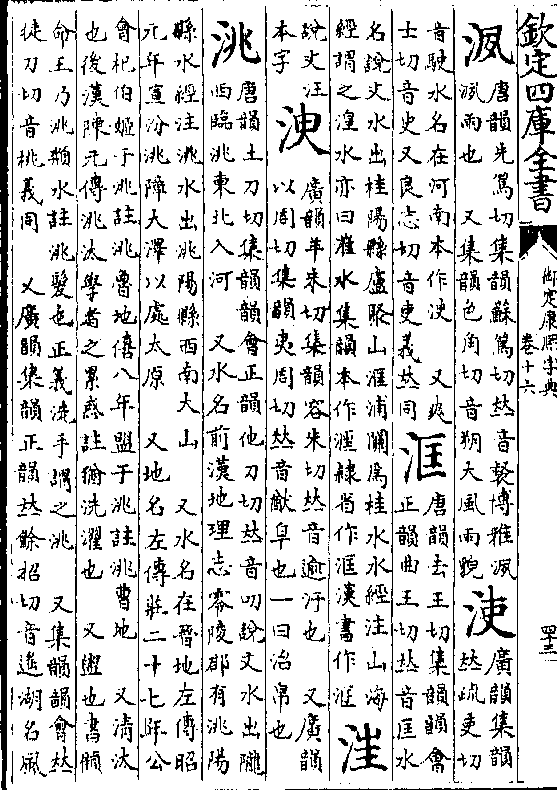 欽定四庫全書
御定康熙字典
卷十六
㳚
唐韻先篤切集韻蘇篤切𠀤音
博雅㳚
㳚雨也 又集韻色角切音朔大風雨貌
浨
廣韻集韻
𠀤疏吏切
音駛水名在河南本作浨 又爽
士切音史又良志切音吏義𠀤同
洭
唐韻去王切集韻韻會
正韻曲王切𠀤音匡水
名說文水出桂陽縣盧聚山洭浦關為桂水水經注山海
經謂之湟水亦曰灕水集韻本作𣴠隸省作洭漢書作匯
洼
說文汪
本字
洩
廣韻羊朱切集韻容朱切𠀤音逾汙也 又廣韻
以周切集韻夷周切𠀤音猷阜也一曰治帛也
洮
唐韻土刀切集韻韻會正韻他刀切𠀤音叨說文水出隴
西臨洮東北入河 又水名前漢地理志零陵郡有洮陽
縣水經注洮水出洮陽縣西南大山 又水名在晉地左傳昭
元年宣汾洮障大澤以處太原 又地名左傳莊二十七年公
會杞伯姬于洮註洮魯地僖八年盟于洮註洮曹地 又淸汰
也後漢陳元傳洮汰學者之累惑註猶洗濯也 又盥也書顧
命王乃洮頮水註洮髮也正義洗手謂之洮 又集韻韻會𠀤
徒刀切音桃義同 又廣韻集韻正韻𠀤餘招切音遙湖名風